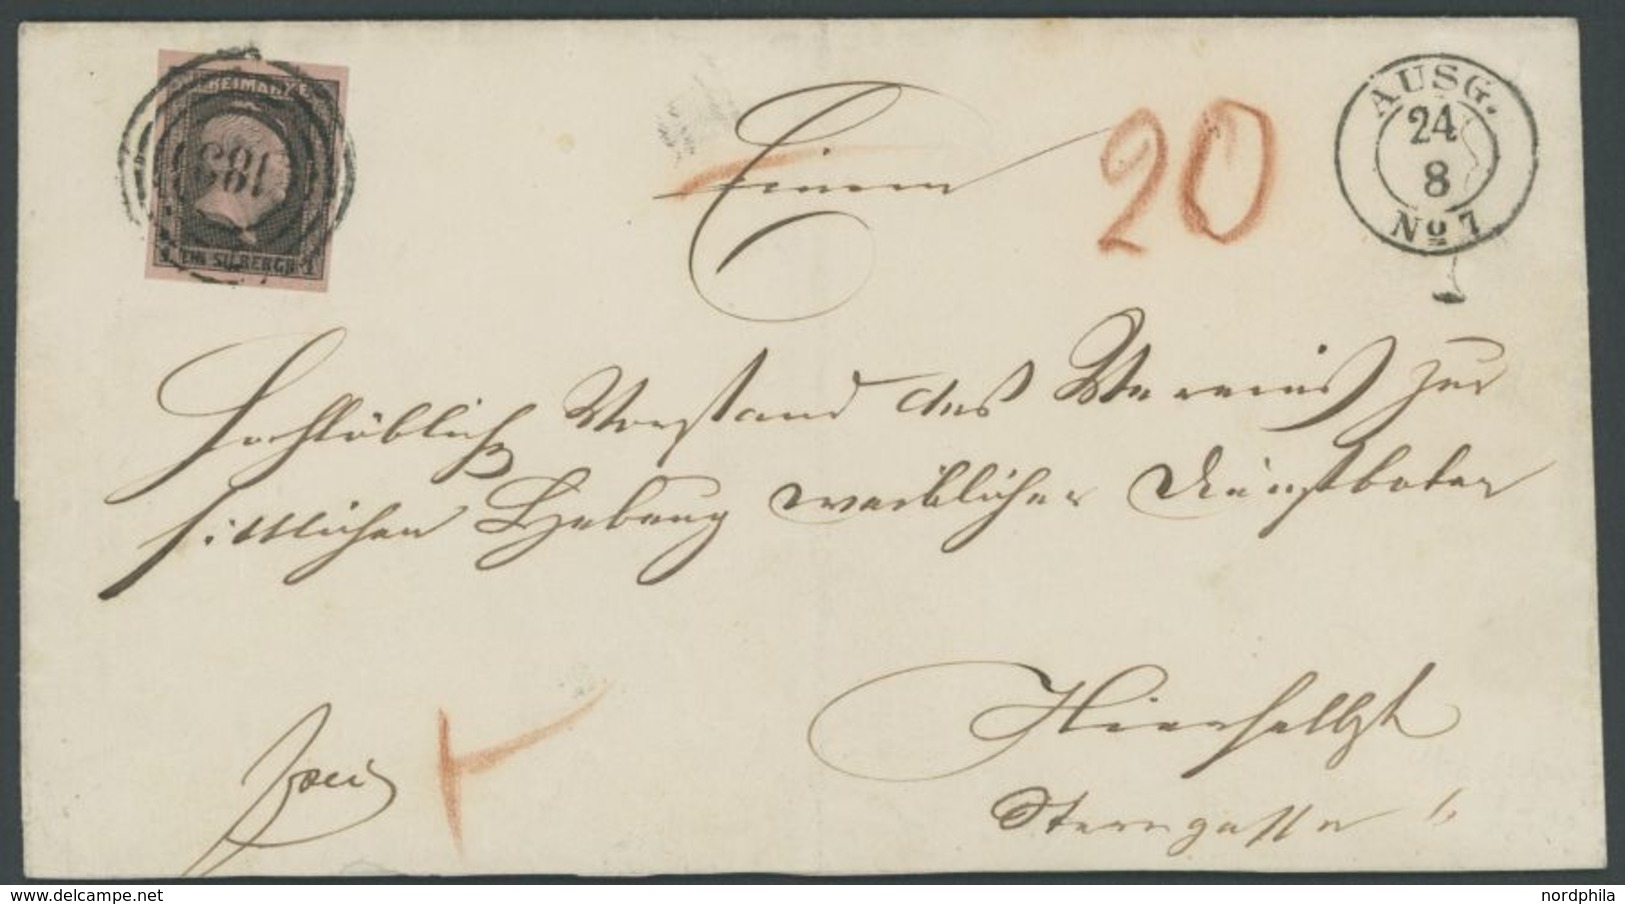 FREIMARKE
1 EIN SILBERGR. 1
Einem
20
AUSG.
24
8
No 1
Hochlöblichen Vorstand des Vereins zur
sittlichen Hebung weiblicher Dienstboten
frei
Hierselbst
Sterngasse
www.delcampe.net
nordphila